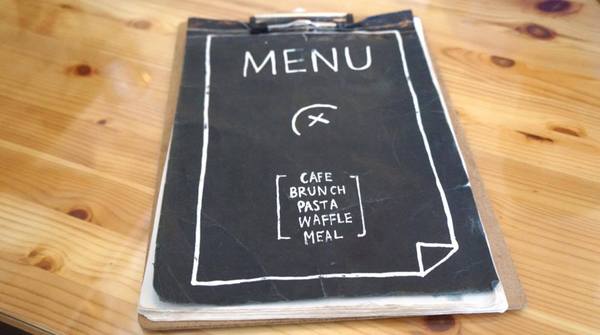 MENU
CAFE
BRUNCH
PASTA
WAFFLE
MEAL